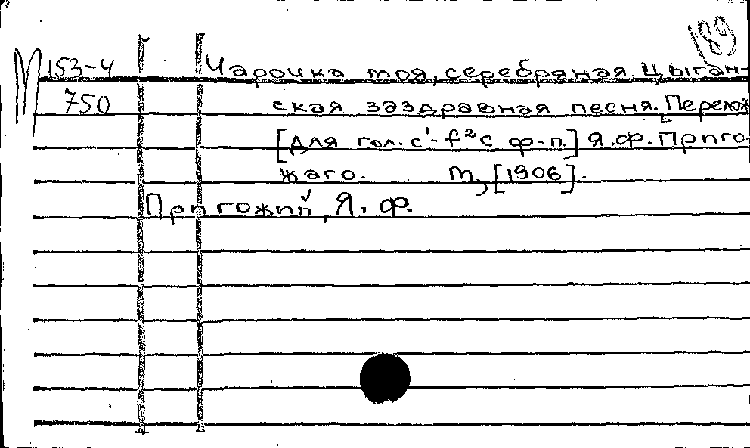 189
М 153-4 Чарочка моя, серебряная. Цыган-
750 ская заздравная песня. Перелож
[для гол. c¹-f² с ф-п.] Я.Ф.Приго-
жаго. М., [1906].
Пригожий, Я. Ф.